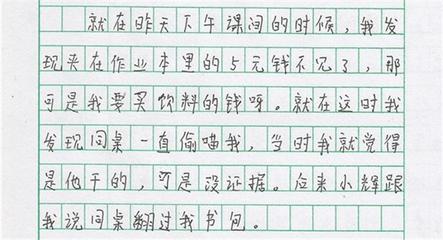 就在昨天下午课间的时候，我发
现夹在作业本里的5元钱不见了，那
可是我要买饮料的钱呀。就在这时我
发现同桌一直偷喵我，当时我就觉得
是他干的，可是没证据。后来小辉跟
我说同桌翻过我书包。